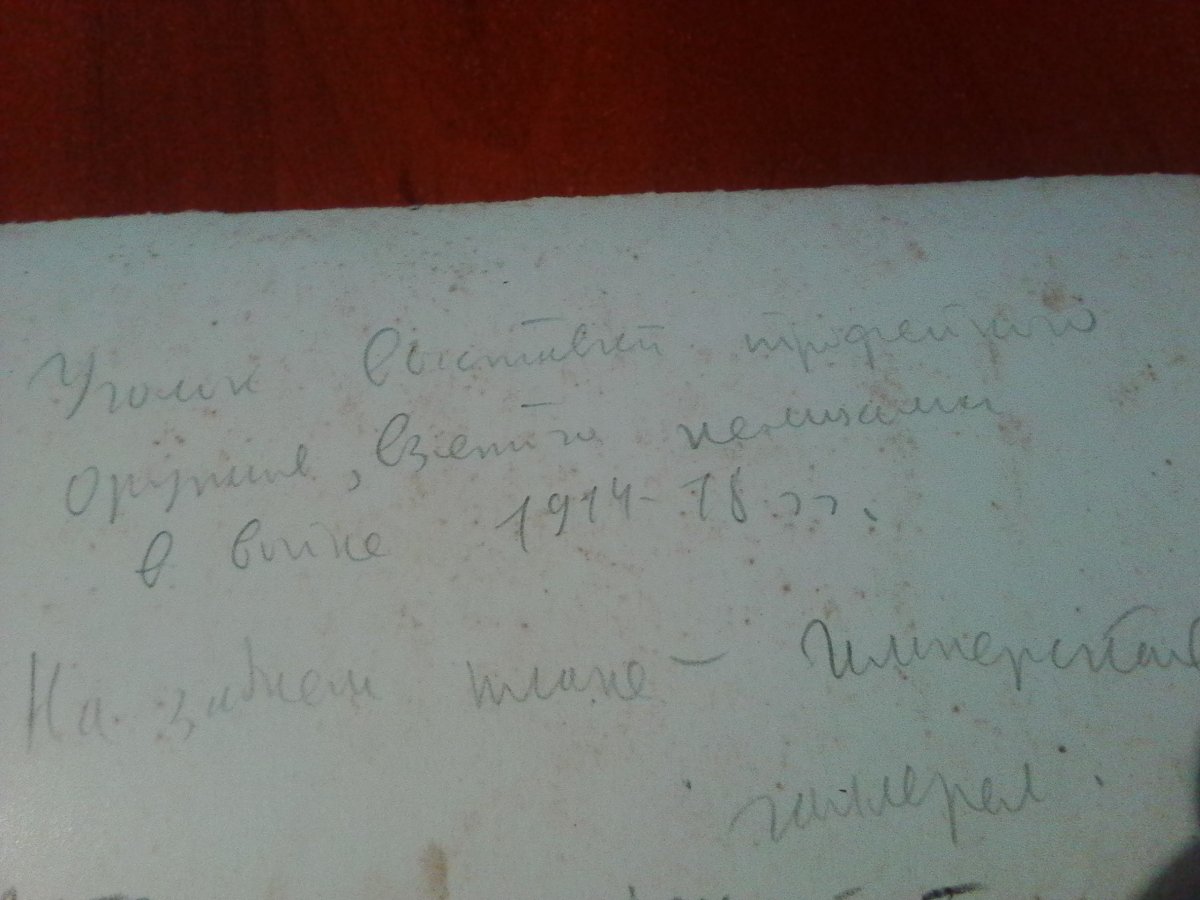 Уголок выставки трофейного
оружия, взятого немцами
в войне 1914-18 гг.
На заднем плане - Имперская
галлерея.